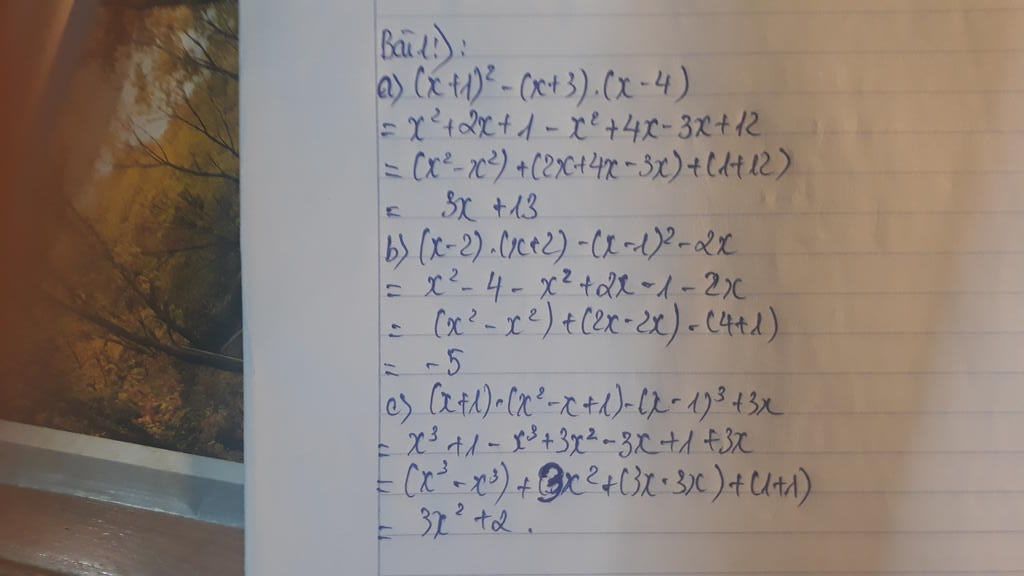 Bài 1:
a) (x+1)² - (x+3).(x-4)
= x²+2x+1 - x²+4x-3x+12
= (x²-x²)+(2x+4x-3x)+(1+12)
= 3x +13
b) (x-2).(x+2) - (x-1)² - 2x
= x² - 4 - x² + 2x - 1 - 2x
= (x² - x²) + (2x-2x) - (4+1)
= -5
c) (x+1).(x²-x+1)-(x-1)³+3x
= x³+1 - x³+3x² - 3x+1+3x
= (x³-x³)+3x²+(3x-3x)+(1+1)
= 3x²+2.